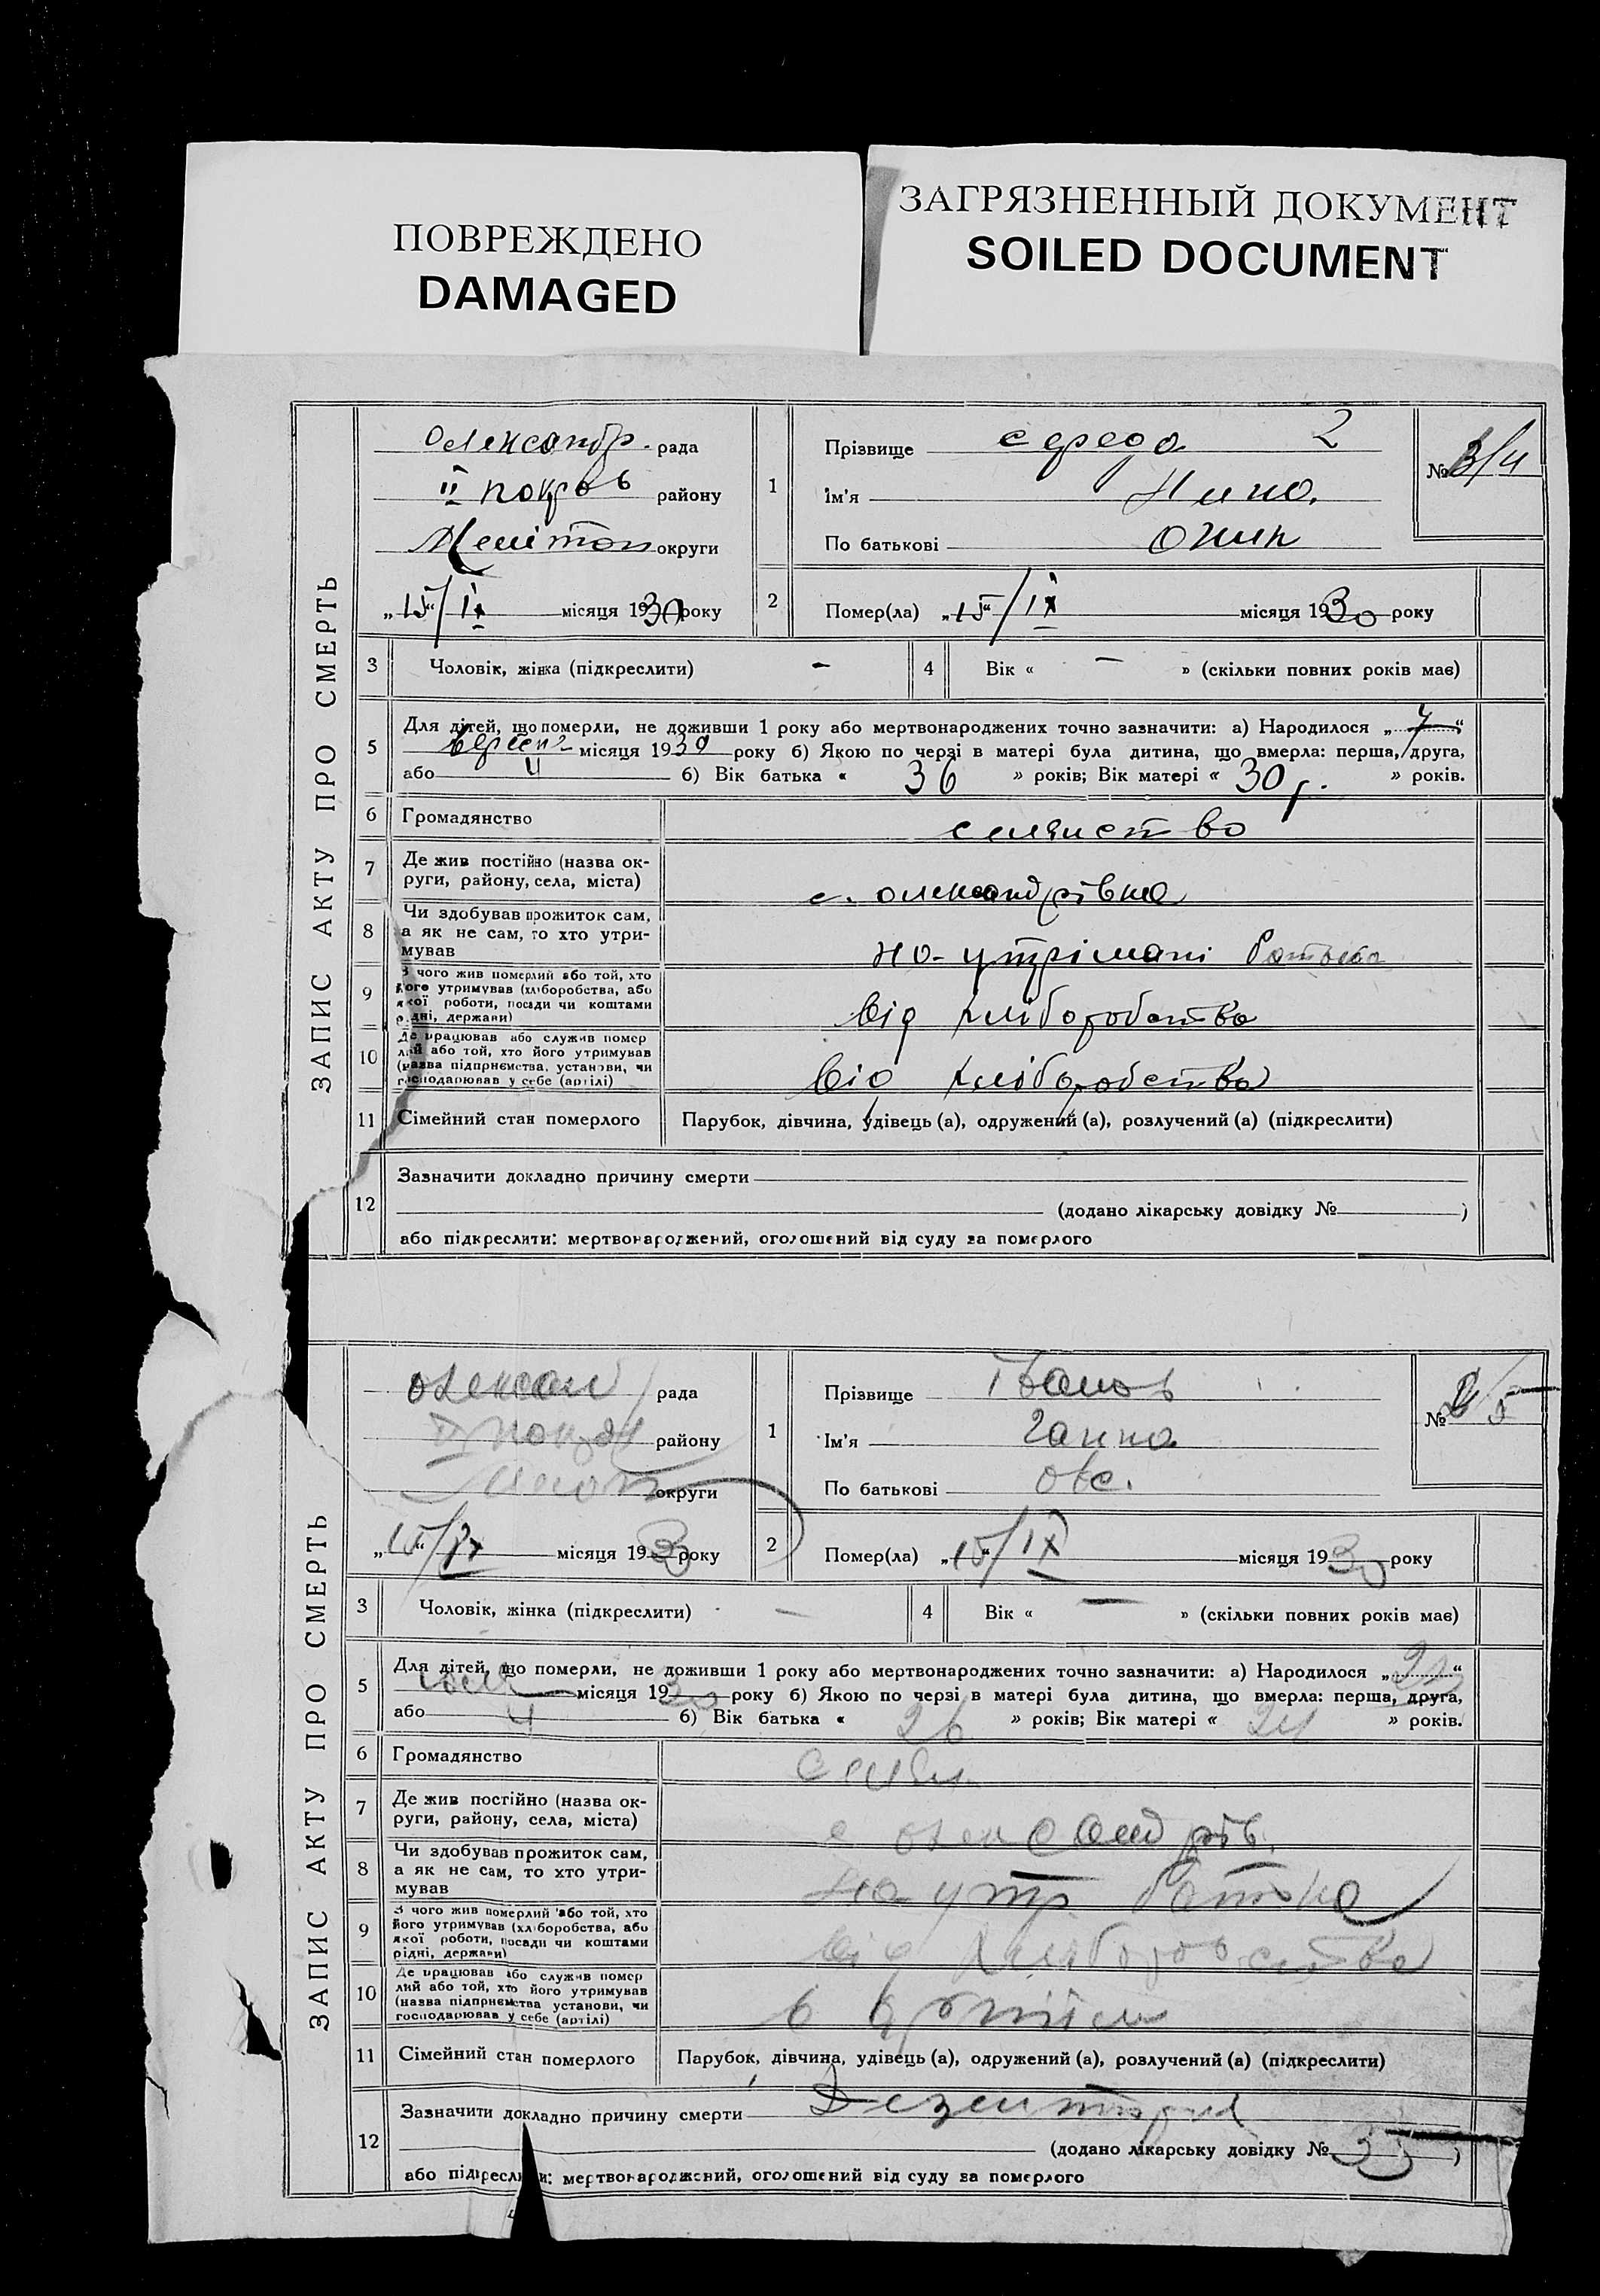 ПОВРЕЖДЕНО
DAMAGED
ЗАГРЯЗНЕННЫЙ ДОКУМЕНТ
SOILED DOCUMENT
ЗАПИС АКТУ ПРО СМЕРТЬ
Олександр. рада
II покров району
Меліտоп округи
„15“/IX місяця 1930 року
1
Прізвище середа 2
Ім'я Нина.
По батькові
№ 3/4
2
Помер(ла) „15“/IX місяця 1930 року
3
Чоловік, жінка (підкреслити) –
4
Вік « – » (скільки повних років має)
5
Для дітей, що померли, не доживши 1 року або мертвонароджених точно зазначити: а) Народилося „ “
місяця 1930 року б) Якою по черзі в матері була дитина, що вмерла: перша, друга,
або 4 б) Вік батька « 36 » років; Вік матері « 30 г. » років.
6
Громадянство селянство
7
Де жив постійно (назва ок-
руги, району, села, міста)
с. олександрівка
8
Чи здобував прожиток сам,
а як не сам, то хто утри-
мував
на-утрімані батька
9
З чого жив померлий або той, хто
його утримував (хліборобства, або
якої роботи, посади чи коштами
рідні, держави)
від хліборобства
10
Де працював або служив помер
лий або той, хто його утримував
(назва підприємства, установи, чи
господарював у себе (артілі)
від хліборобства
11
Сімейний стан померлого
Парубок, дівчина, удівець (а), одружений (а), розлучений (а) (підкреслити)
12
Зазначити докладно причину смерти
(додано лікарську довідку № )
або підкреслити: мертвонароджений, оголошений від суду за померлого
ЗАПИС АКТУ ПРО СМЕРТЬ
олексан рада
II покров району
округи
„15“/IX місяця 1930 року
1
Прізвище Іванов
Ім'я Ганна
По батькові
№ 5
2
Помер(ла) „15“/IX місяця 1930 року
3
Чоловік, жінка (підкреслити) –
4
Вік « – » (скільки повних років має)
5
Для дітей, що померли, не доживши 1 року або мертвонароджених точно зазначити: а) Народилося „ “
місяця 1930 року б) Якою по черзі в матері була дитина, що вмерла: перша, друга,
або 4 б) Вік батька « 26 » років; Вік матері « 24 » років.
6
Громадянство селян.
7
Де жив постійно (назва ок-
руги, району, села, міста)
с олександрів.
8
Чи здобував прожиток сам,
а як не сам, то хто утри-
мував
на утр батка
9
З чого жив померлий або той, хто
його утримував (хліборобства, або
якої роботи, посади чи коштами
рідні, держави)
від хліборобства
10
Де працював або служив помер
лий або той, хто його утримував
(назва підприємства установи, чи
господарював у себе (артілі)
в
11
Сімейний стан померлого
Парубок, дівчина, удівець (а), одружений (а), розлучений (а) (підкреслити)
12
Зазначити докладно причину смерти Дезентрия
(додано лікарську довідку № )
або підкреслити: мертвонароджений, оголошений від суду за померлого